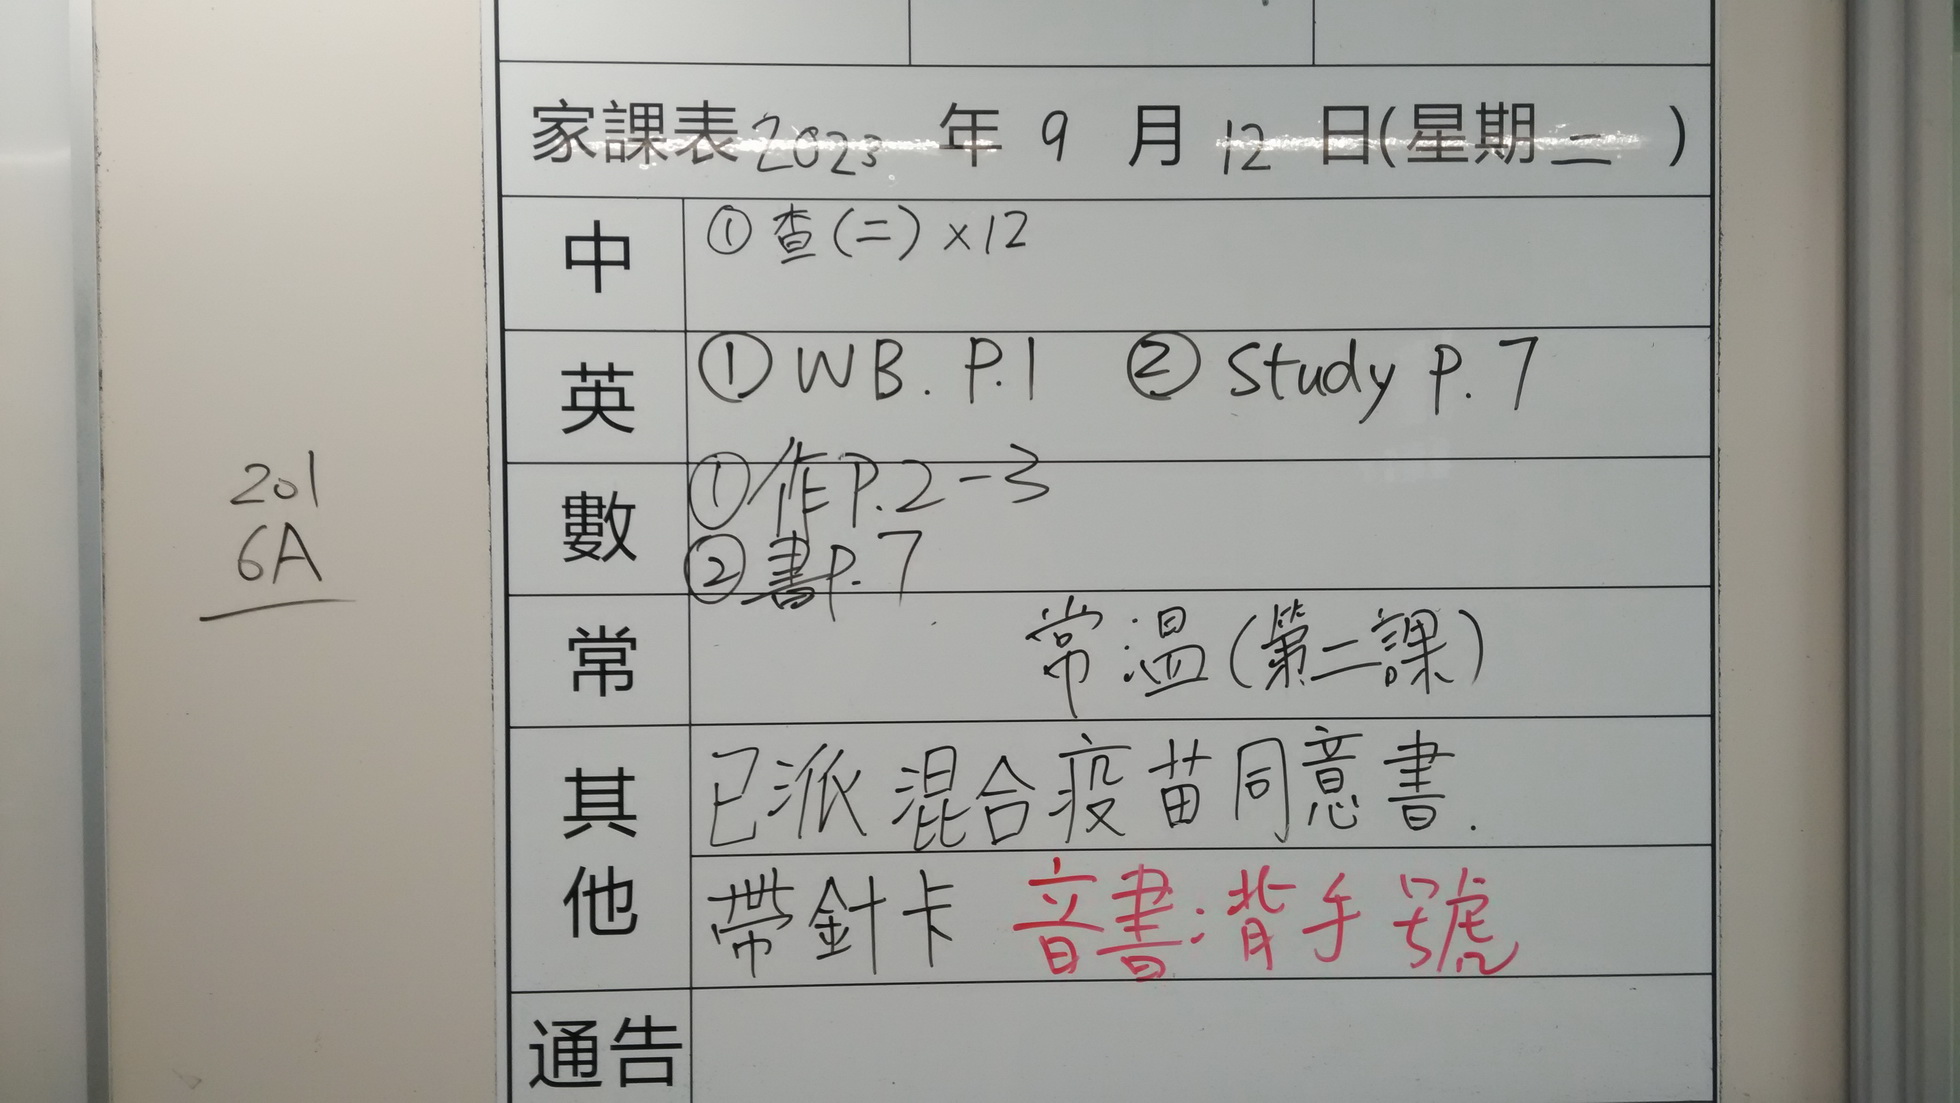 家課表 2023 年 9 月 12 日(星期二 )
中 ① 查(二) ×12
英 ① WB. P.1 ② Study P. 7
數 ① 作 P.2-3
② 書 p.7
常 常溫(第二課)
其他 已派混合疫苗同意書.
帶針卡 音書:背手號
通告
201
6A